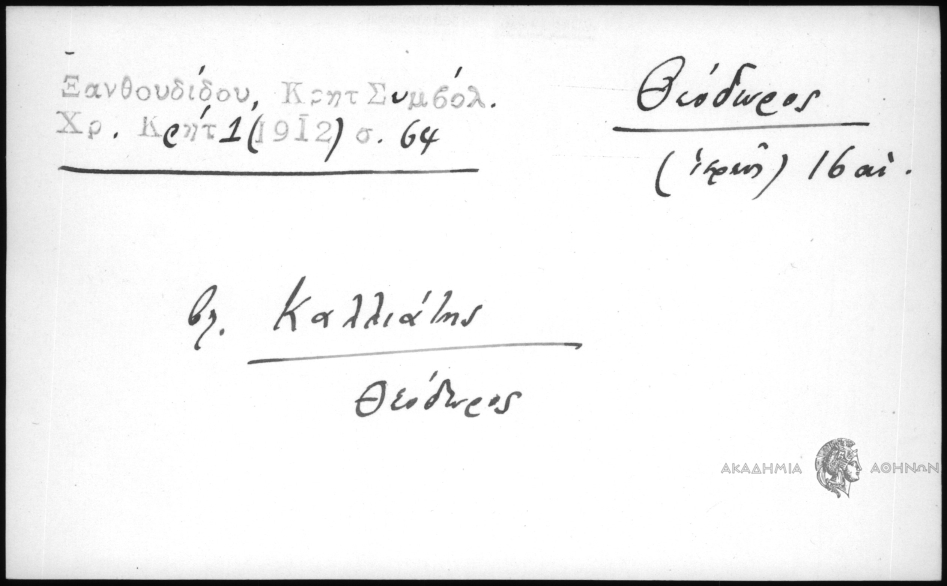 Ξανθουδίδου, Κρητ Συμβόλ.
Χρ. Κρήτ 1 (1912) σ. 64
Θεόδωρος
(ἱερεὺς) 16 αἰ.
βλ. Καλλιάτης
Θεόδωρος
ΑΚΑΔΗΜΙΑ ΑΘΗΝΩΝ